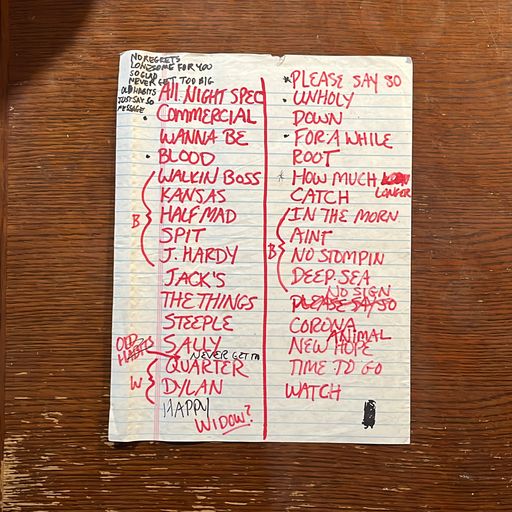 NO REGRETS
LONESOME FOR YOU
SO GLAD
NEVER GET TOO BIG
OLD HABITS
JUST SAY SO
MESSAGE
ALL NIGHT SPEC
• COMMERCIAL
WANNA BE
• BLOOD
WALKIN BOSS
KANSAS
B { HALF MAD
SPIT
J. HARDY
JACK'S
THE THINGS
STEEPLE
OLD HABITS
SALLY
NEVER GET TO
QUARTER
W { DYLAN
HAPPY
WIDOW?
* PLEASE SAY SO
• UNHOLY
DOWN
• FOR A WHILE
ROOT
* HOW MUCH LONGER
CATCH
IN THE MORN
AINT
B { NO STOMPIN
DEEP SEA
NO SIGN
PLEASE SAY SO
CORONA
ANIMAL
NEW HOPE
TIME TO GO
WATCH